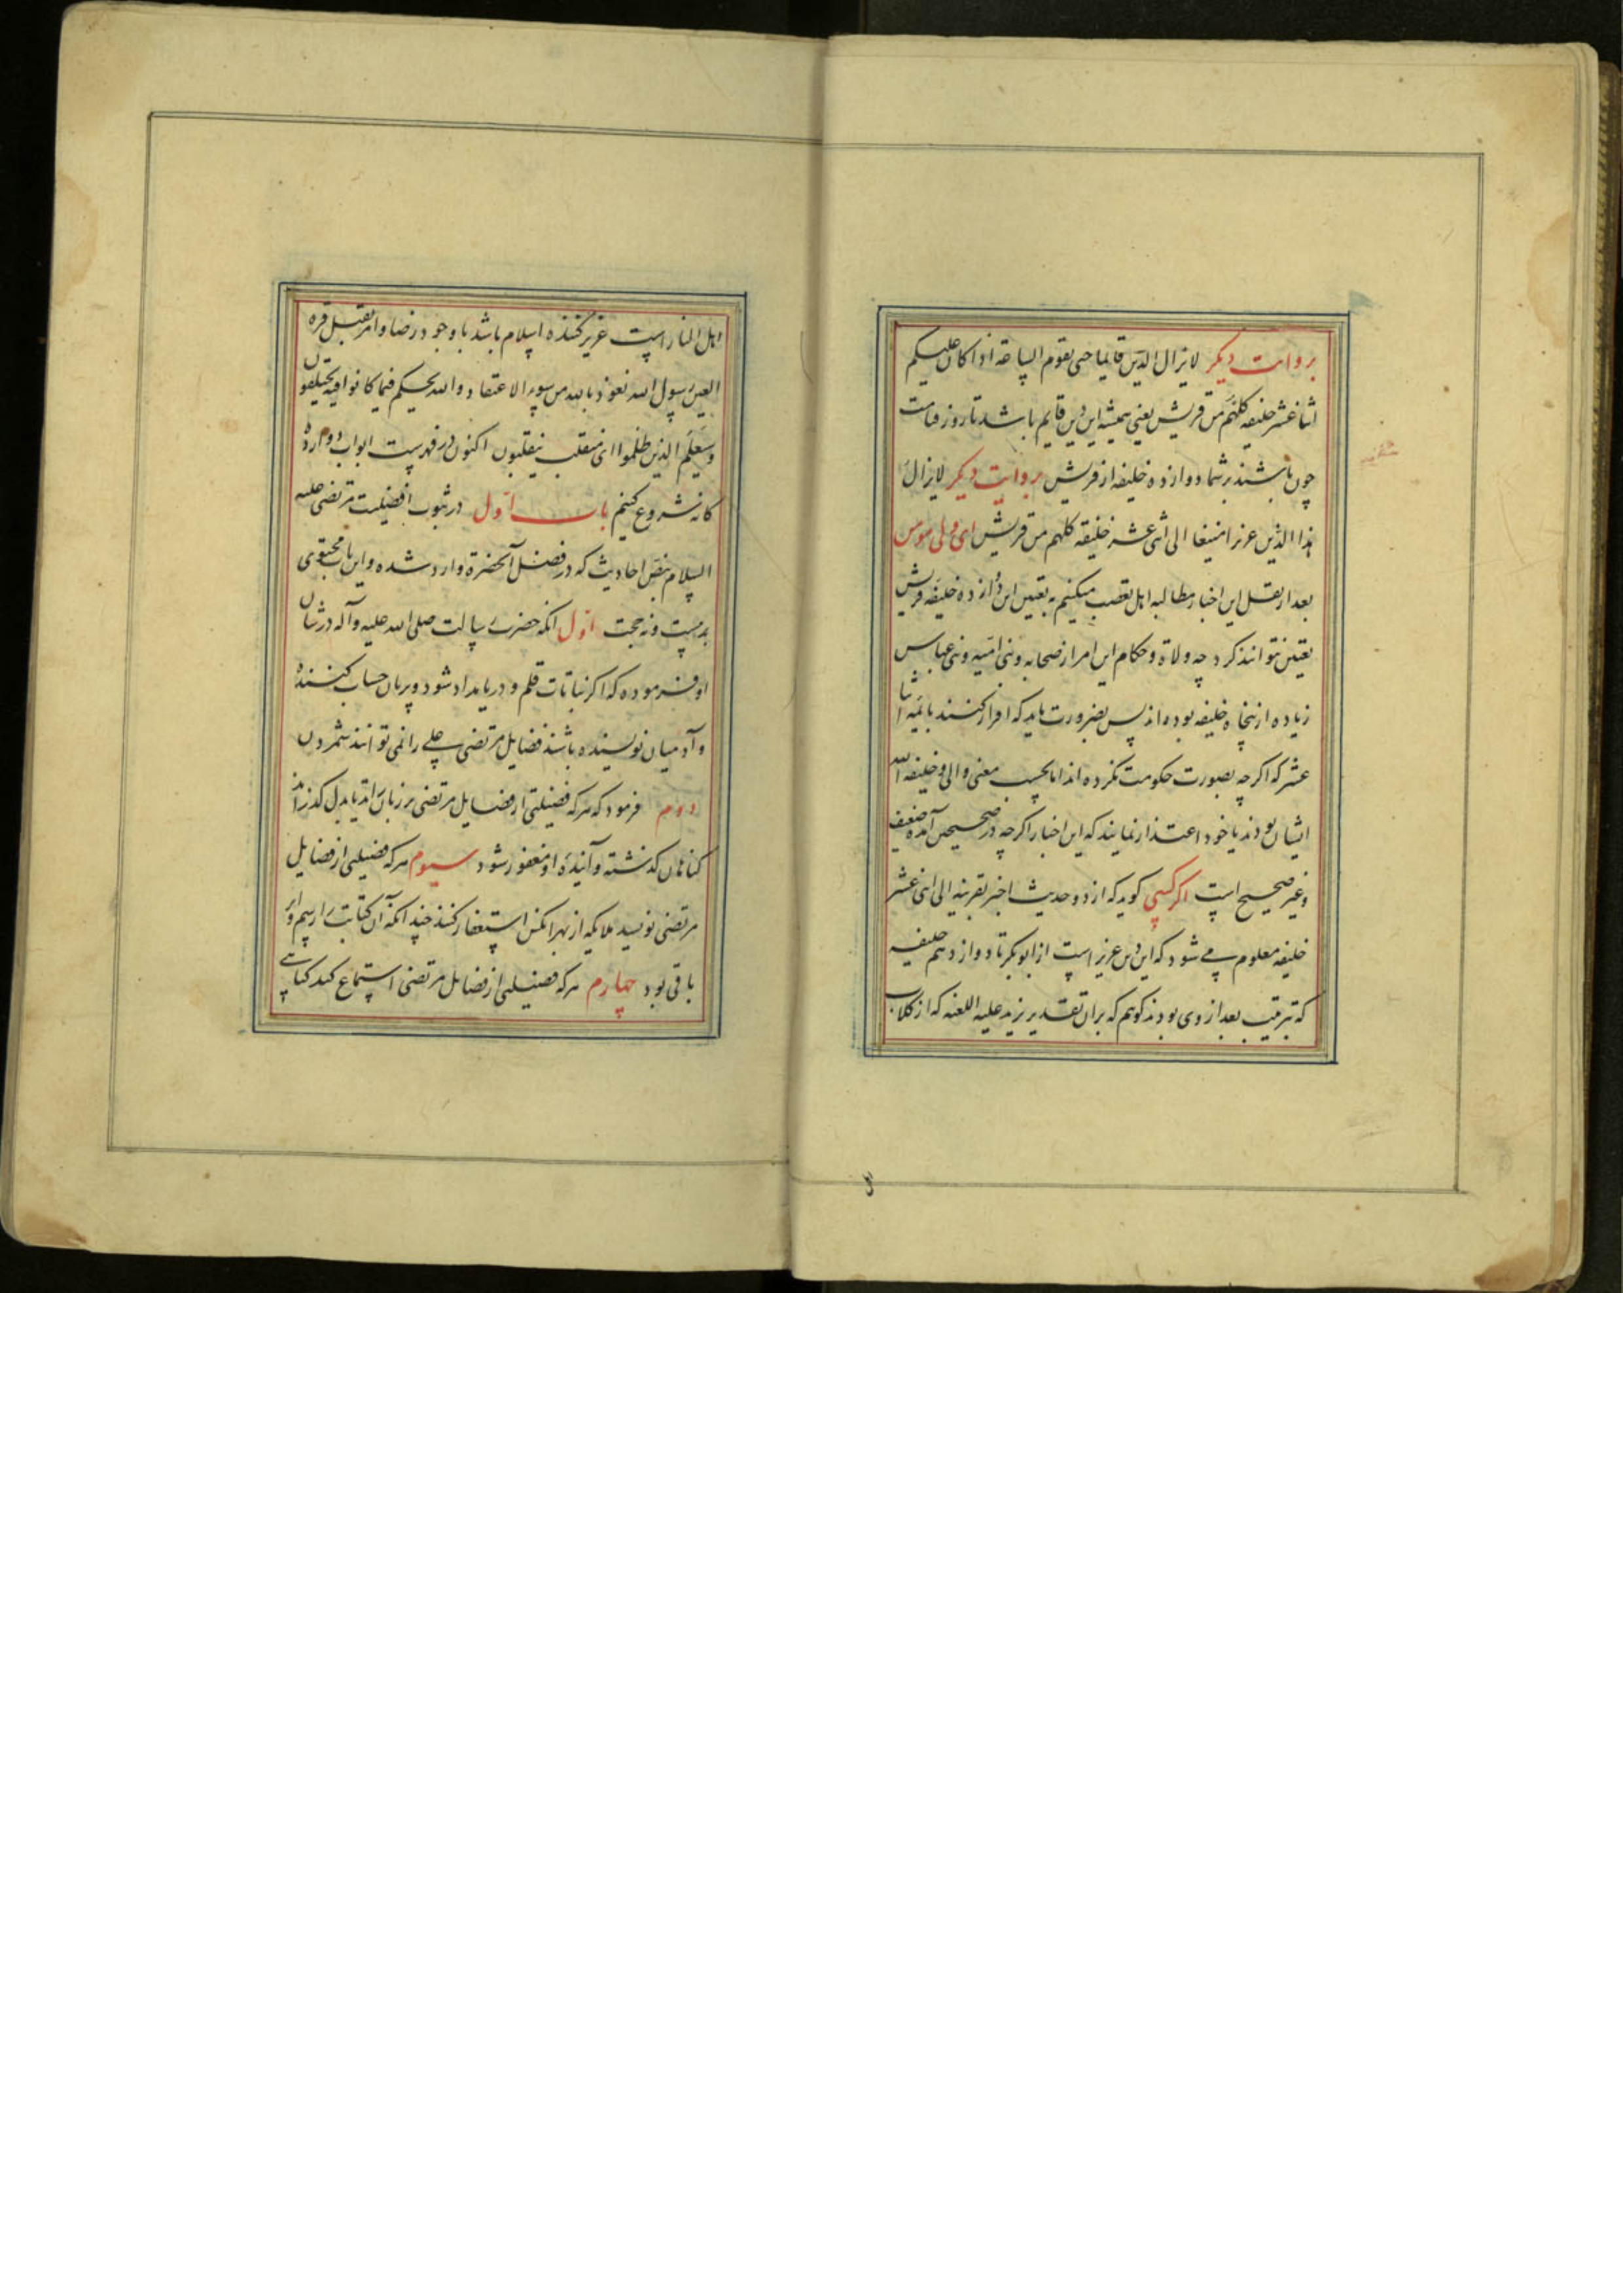 بروایت دیگر لایزال الدین قایما حتی تقوم الساعة اذا کان علیکم
اثنا عشر خلیفه کلهم من قریش یعنی همیشه این دین قایم باشد تا روز قیامت
چون باشند بر شما دوازده خلیفه از قریش بروایت دیگر لایزال
هذا الدین عزیزا منیعا الی اثنی عشر خلیفه کلهم من قریش ای ولی مومن
بعد از نقل این اخبار مطالبه اهل تعصب میکنیم به تعیین این دوازده خلیفه قریش
تعیین نتوانند کرد چه ولاة و حکام این امر از صحابه و بنی امیه و بنی عباس
زیاده از پنجاه خلیفه بوده اند پس بضرورت باید که اقرار کنند بائمه اثنا
عشر که اکرچه بصورت حکومت نکرده اند اما بحسب معنی والی و خلیفه الله
ایشان بودند یا خود اعتذار نمایند که این اخبار اکرچه در صحیحین آمده ضعیف
و غیر صحیح است اکر کسی کوید که از دو حدیث اخیر بقرینه الی اثنی عشر
خلیفه معلوم می شود که این دین عزیز است از ابوبکر تا دوازدهم خلیفه
که بترتیب بعد از وی بودند کوهم که بران تقدیر یزید علیه اللعنه که از کلاب
اهل النار است عزیز کننده اسلام باشد با وجود رضا و امر بقتل قره
العین رسول الله نعوذ بالله من سوء الاعتقاد والله یحکم فیما کانوا فیه یختلفون
وسیعلم الذین ظلموا ای منقلب ینقلبون اکنون در فهرست ابواب دوازده
کانه شروع کنیم باب اول در ثبوت افضلیت مرتضی علیه
السلام بنص احادیث که در فضل آنحضرة وارد شده و این باب محتوی
بدویست و نه حجت اول آنکه حضرت رسالت صلی الله علیه وآله در شان
او فرموده که اکر نباتات قلم و دریا مداد شود و پریان حساب کننده
و آدمیان نویسنده باشند فضایل مرتضی علی را نمی توانند شمردن
دوم فرمود که هر که فضیلتی از فضایل مرتضی بر زبان راند یا بدل کذراند
کناهان کذشته و آینده او مغفور شود سیوم هر که فضیلتی از فضایل
مرتضی نویسد ملایکه از بهر آنکس استغفار کنند چندانکه آن کتابت را رسم و اثر
باقی بود چهارم هر که فضیلتی از فضایل مرتضی استماع کند کناهی